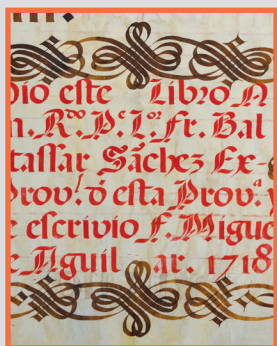 dio este Libro N
n. R.º P.ᵉ L.ºʳ Fr. Bal
tassar Sãchez Ex-
Prov.ˡ đ esta Prov.ª
e escrivio F. Migue
e Aguil ar. 1718